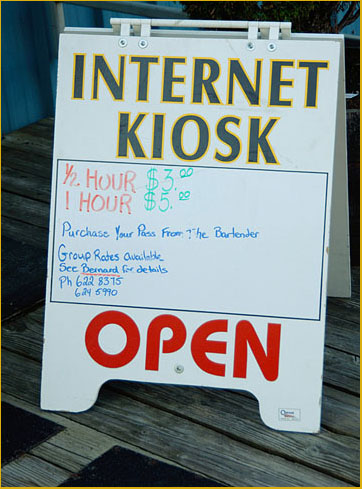 INTERNET
KIOSK
1/2 HOUR $3.00
1 HOUR $5.00
Purchase Your Pass From The Bartender
Group Rates available
See Bernard for details
Ph 622 8375
624 5990
OPEN